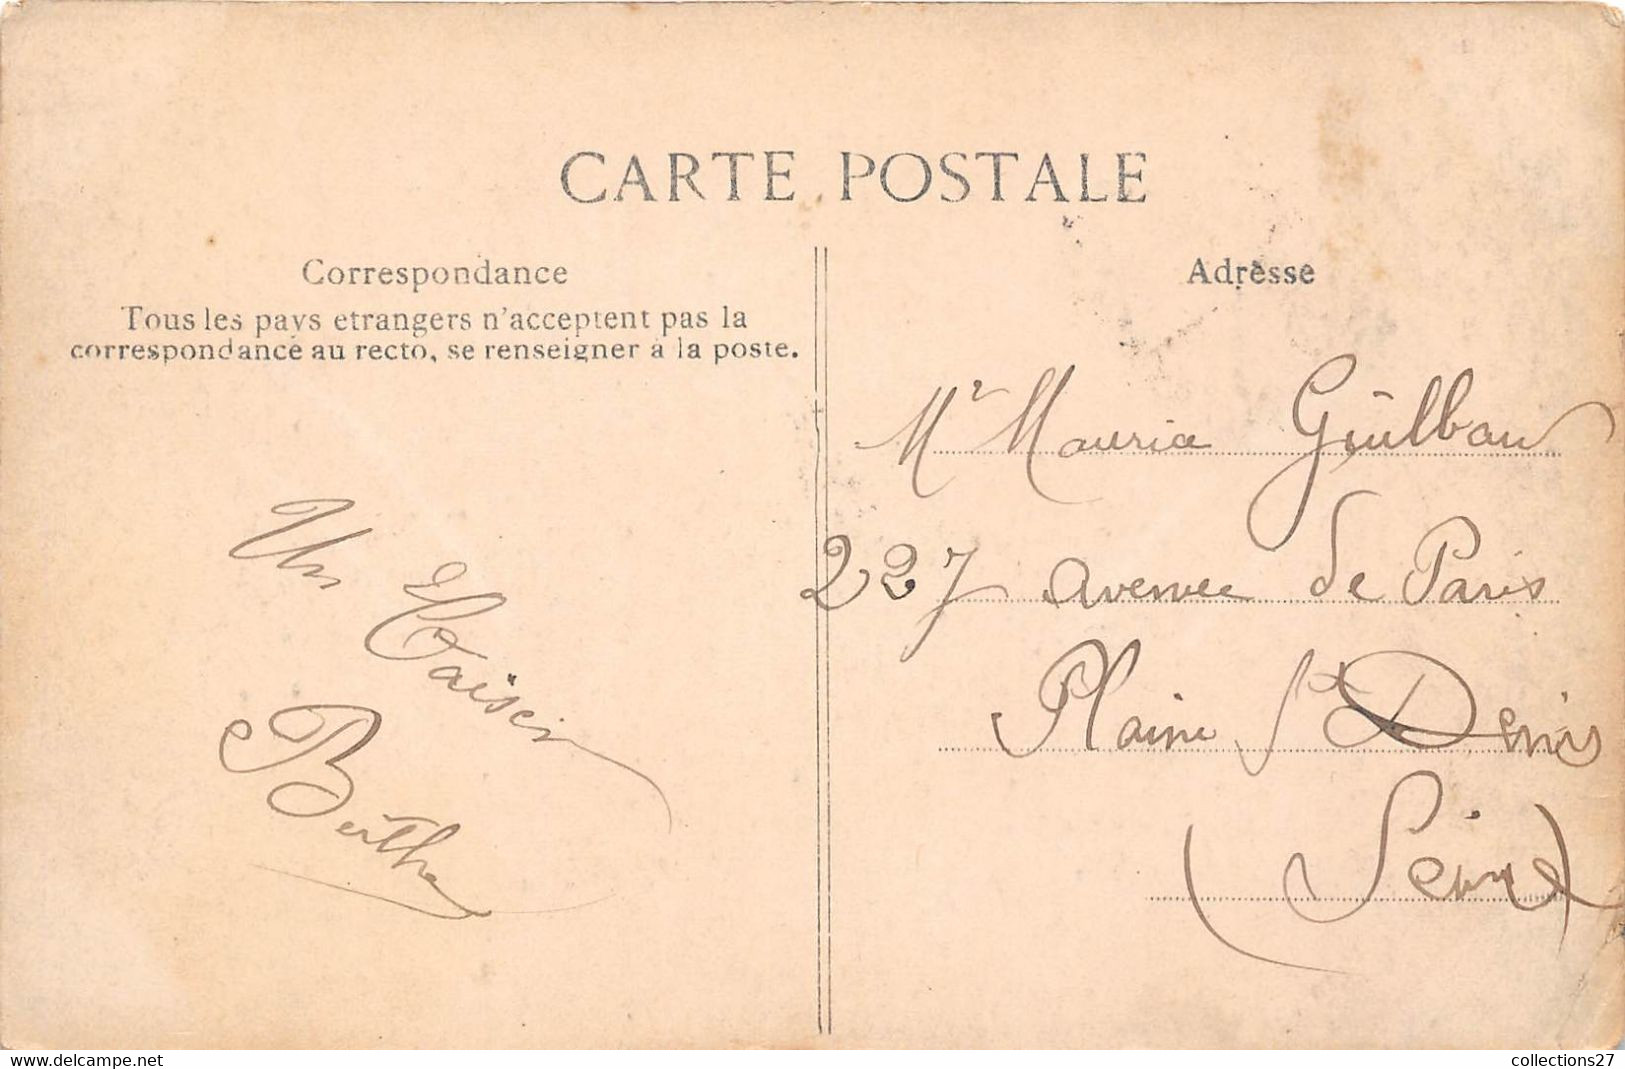 CARTE POSTALE
Correspondance
Tous les pays etrangers n'acceptent pas la
correspondance au recto, se renseigner à la poste.
Un Baiser
Berthe
Adresse
Mr Maurice Guilbau
227 avenue de Paris
Plaine St Denis
(Seine)
https://www.delcampe.net
collections27